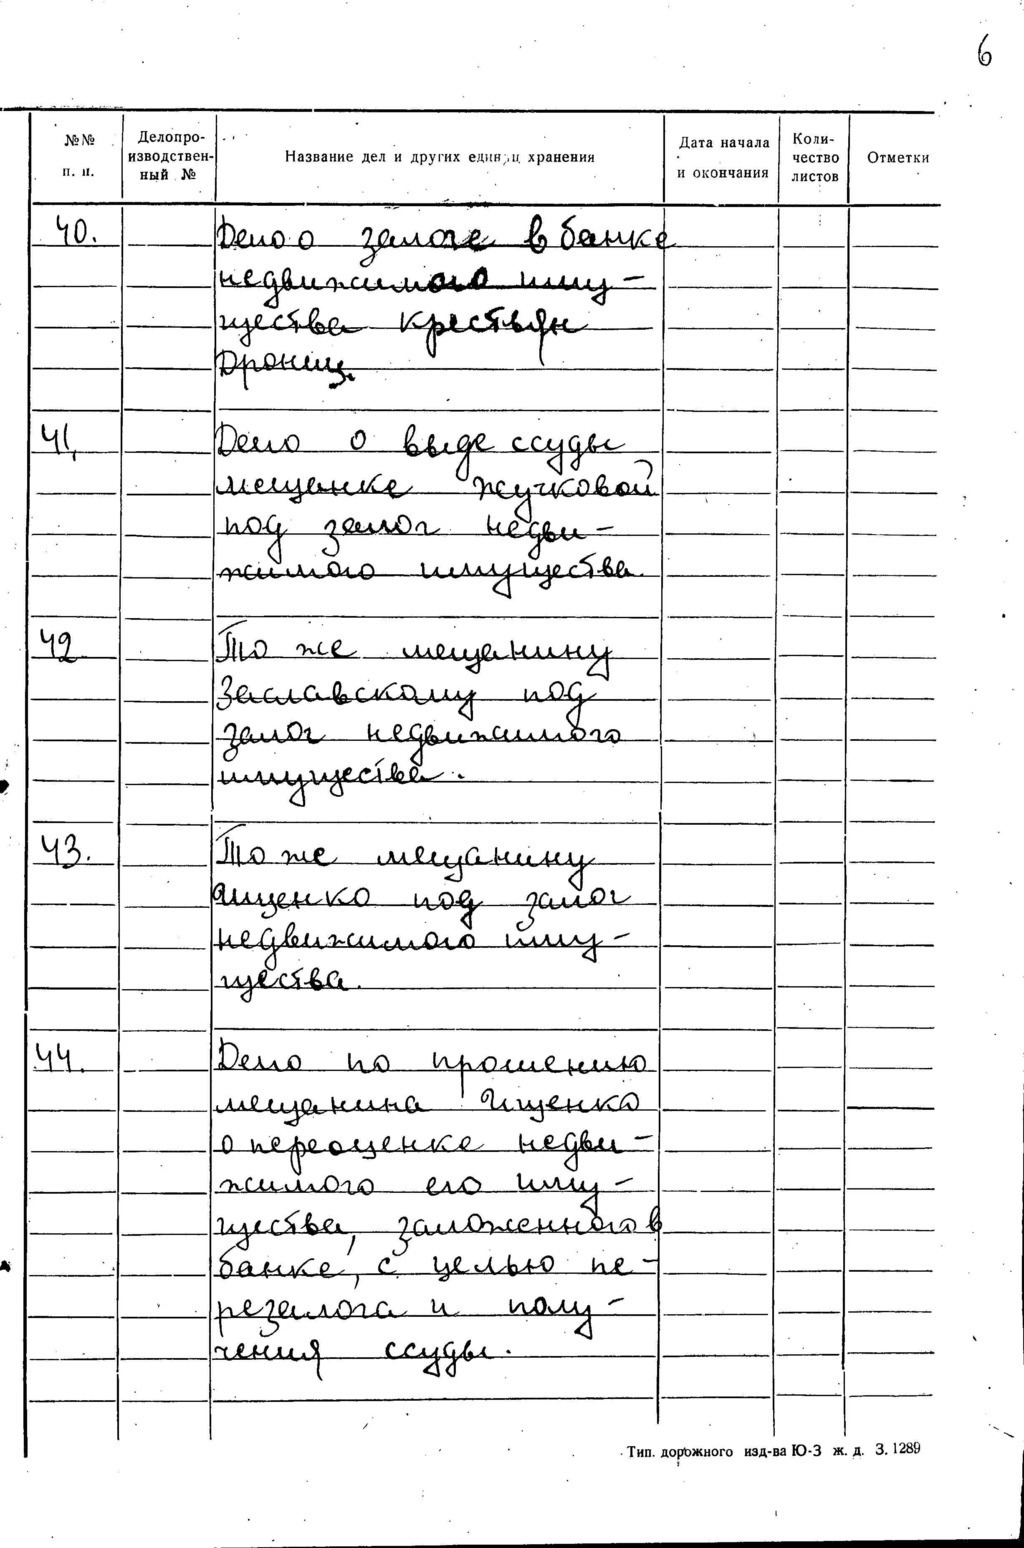 6
№№ п. п.
Делопро-
изводствен-
ный №
Название дел и других единиц хранения
Дата начала
и окончания
Коли-
чество
листов
Отметки
40. Дело о залоге в банке
недвижимого иму-
щества крестьян
41. Дело о выде ссуды
мещанке Жучковой
под залог недви-
жимого имущества.
42 То же мещанину
Заславскому под
залог недвижимого
имущества.
43. То же мещанину
Ищенко под залог
недвижимого иму-
щества.
44. Дело по прошению
мещанина Ищенко
о переоценке недви-
жимого его иму-
щества, заложенного в
банке, с целью пе-
резалога и полу-
чения ссуды.
Тип. дорожного изд-ва Ю-З ж. д. З. 1289